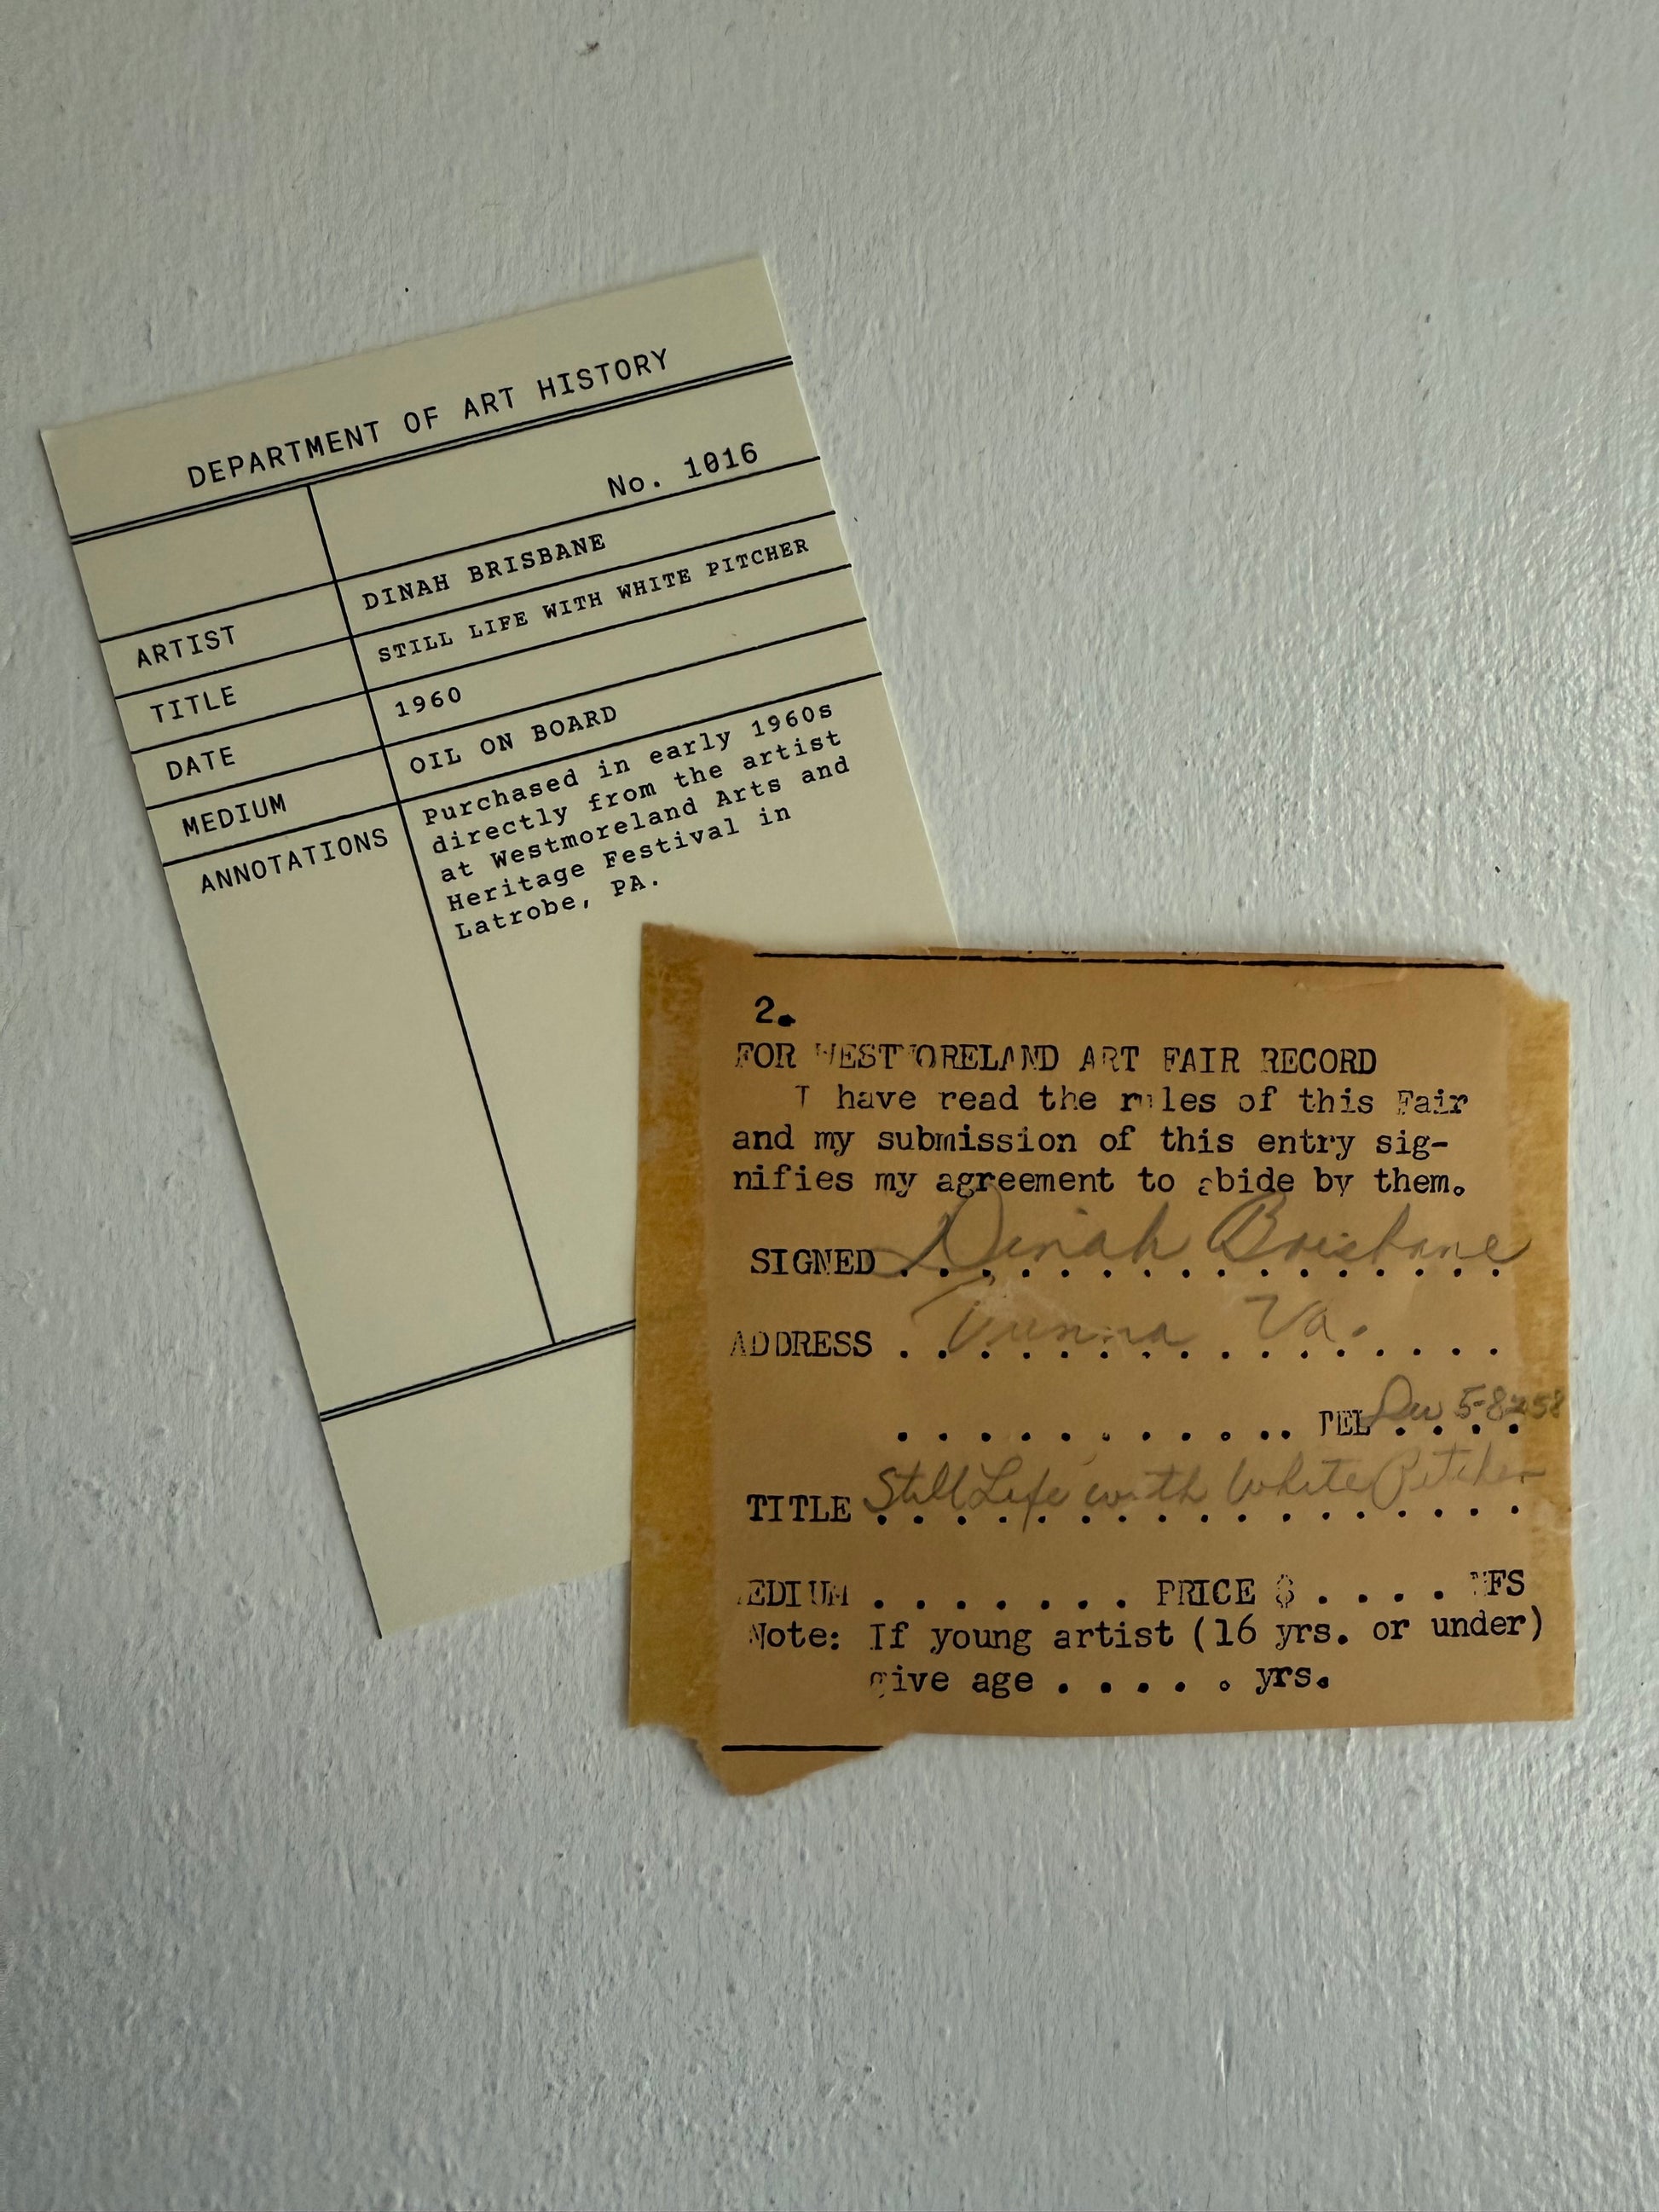 DEPARTMENT OF ART HISTORY
No. 1016
ARTIST DINAH BRISBANE
TITLE STILL LIFE WITH WHITE PITCHER
DATE 1960
MEDIUM OIL ON BOARD
ANNOTATIONS Purchased in early 1960s
directly from the artist
at Westmoreland Arts and
Heritage Festival in
Latrobe, PA.
2.
FOR WESTMORELAND ART FAIR RECORD
I have read the rules of this Fair
and my submission of this entry sig-
nifies my agreement to abide by them.
SIGNED Dinah Brisbane
ADDRESS Vienna Va.
TEL
TITLE Still Life with White Pitcher
MEDIUM . . . . . . . PRICE $ . . . . NFS
Note: If young artist (16 yrs. or under)
give age . . . . . yrs.